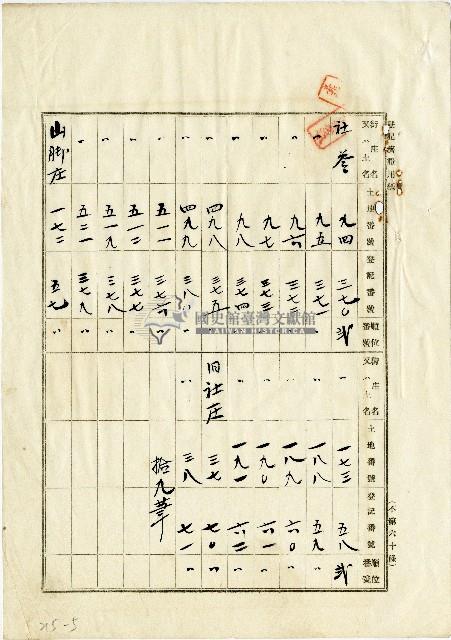 街庄名 又ハ土名 土地番號 登記番號 順位番號
九四 三七〇 弐
〃 九五 三七一 〃
〃 九六 三七二 〃
〃 九七 三七三 〃
〃 九八 三七四 〃
〃 四九八 三七五 〃
〃 四九九 〃
〃 五一一 三七六 〃
〃 三七七 〃
〃 五一九 三七八 〃
〃 五二一 三七九 〃
山脚庄 一七二 五七 〃
街庄名 又ハ土名 土地番號 登記番號 順位番號
〃 一七三 五八 弐
〃 一八八 五九 〃
〃 一八九 六〇 〃
〃 一九〇 六一 〃
〃 一九一 六二 〃
旧社庄 三七 七〇 〃
〃 三八 七一 〃
拾九筆
(不第六十條)
國史館臺灣文獻館
TAIWAN HISTORICA